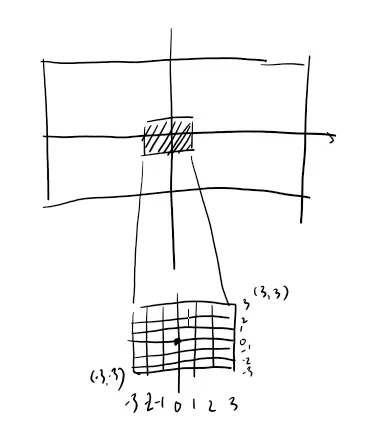 3 (3,3)
2
1
0
-1
-2
-3
(-3,-3)
-3 -2 -1 0 1 2 3